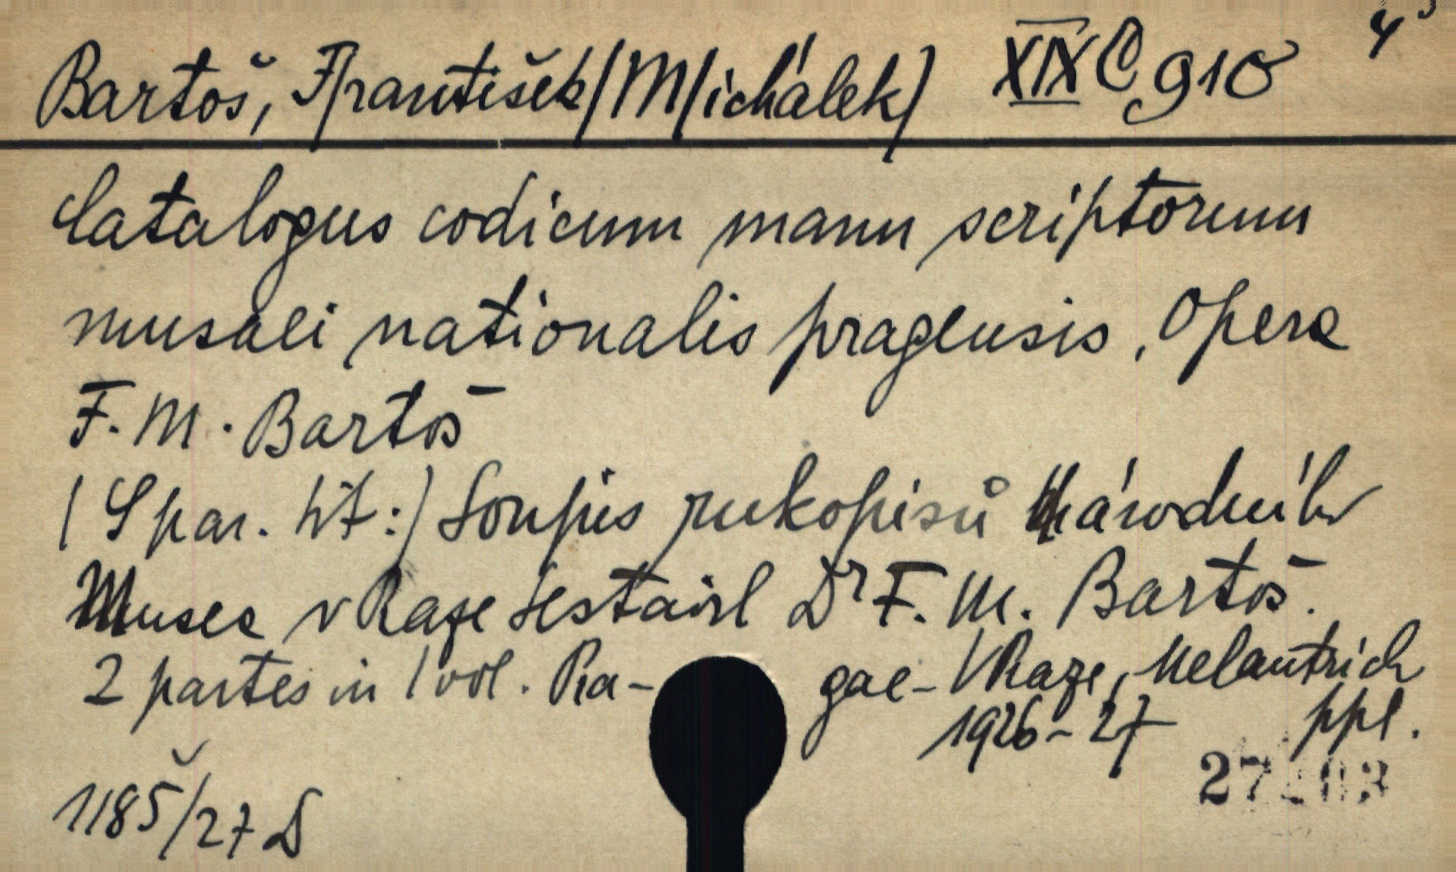 Bartoš, F/rantišek/(M/ichálek) XIX C 910 4°
Catalogus codicum manu scriptorum
musaei nationalis pragensis, Opera
F. M. Bartoš
(Spar. tit:) Soupis rukopisů Národního
Musea v Praze sestavil Dr F. M. Bartoš.
2 partes in 1 vol. Pra-gae- V Praze, Melantrich
1926-27 ppl.
1185/27 D